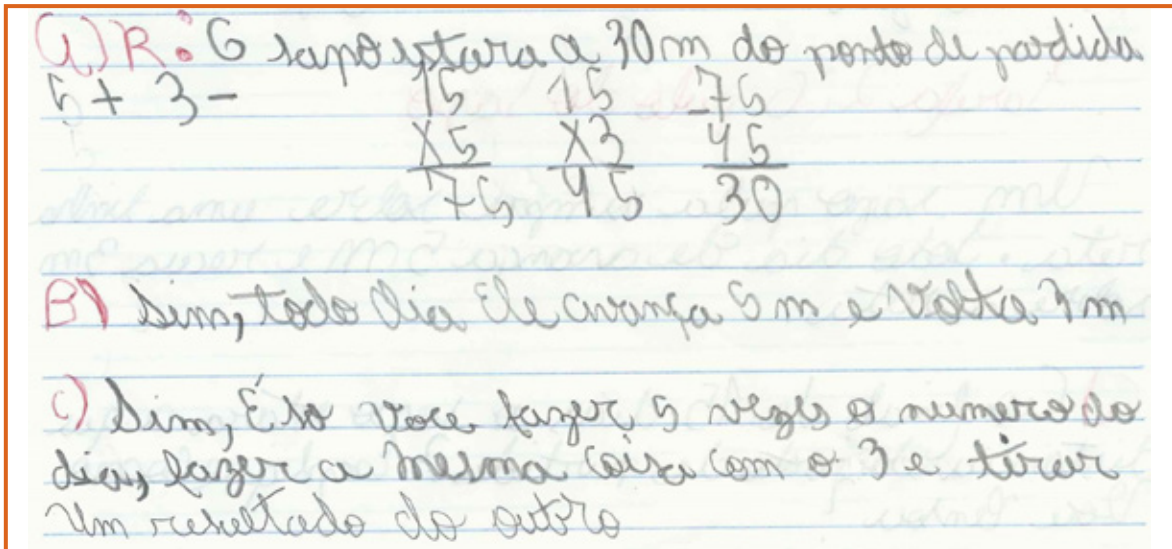 a) R: O sapo estara a 30m do ponto de partida
5+ 3- 15 15 -75
x5 x3 45
75 45 30
B) Sim, todo dia ele avança 5m e volta 3m
c) Sim, É so voce fazer 5 vezes o numero do
dia, fazer a mesma coisa com o 3 e tirar
um resultado do outro